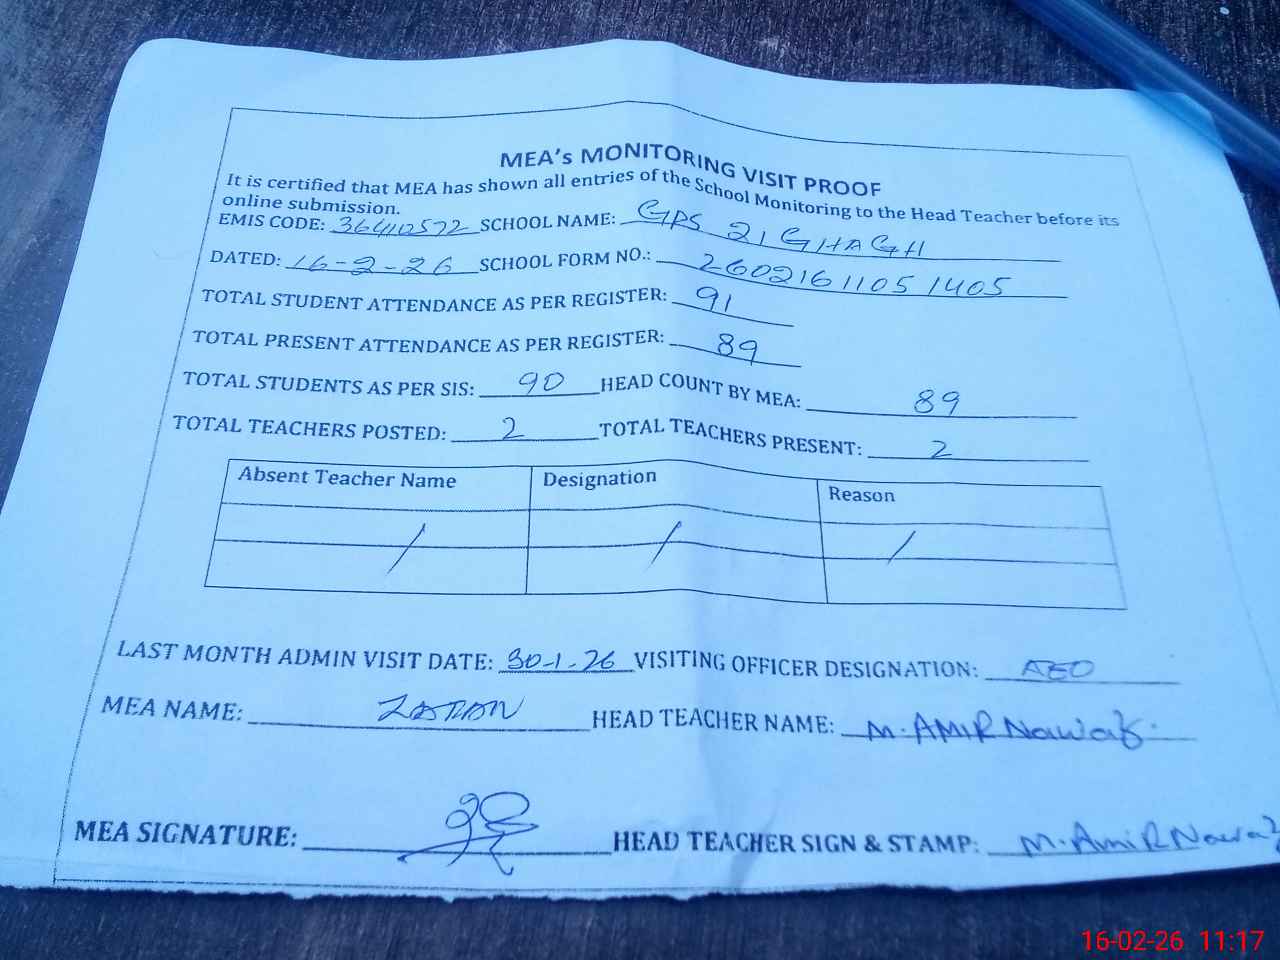 MEA's MONITORING VISIT PROOF
It is certified that MEA has shown all entries of the School Monitoring to the Head Teacher before its
online submission.
EMIS CODE: 36410572 SCHOOL NAME: GPS 21 GHAGH
DATED: 16-2-26 SCHOOL FORM NO.: 2602161105 1405
TOTAL STUDENT ATTENDANCE AS PER REGISTER: 91
TOTAL PRESENT ATTENDANCE AS PER REGISTER: 89
TOTAL STUDENTS AS PER SIS: 90 HEAD COUNT BY MEA: 89
TOTAL TEACHERS POSTED: 2 TOTAL TEACHERS PRESENT: 2
Absent Teacher Name Designation Reason
/ / /
LAST MONTH ADMIN VISIT DATE: 30-1-26 VISITING OFFICER DESIGNATION: AEO
MEA NAME: HEAD TEACHER NAME: M. AMIR Nawaz.
MEA SIGNATURE: HEAD TEACHER SIGN & STAMP: M. AmiR Nawaz
16-02-26 11:17